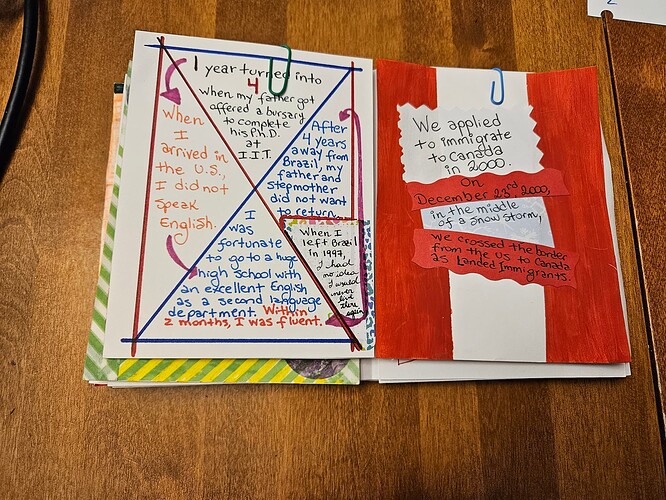 1 year turned into
4
when my father got
offered a bursary
to complete
his Ph.D.
at
I.I.T.
When
I
arrived in
the U.S.,
I did not
speak
English.
I
was
fortunate
to go to a huge
high school with
an excellent English
as a second language
department. Within
2 months, I was fluent.
After
4 years
away from
Brazil, my
father and
stepmother
did not want
to return.
When I
left Brazil
in 1997,
I had
no idea
I would
never
live
there
again.
We applied
to immigrate
to Canada
in 2000.
On
December 23rd, 2000,
in the middle
of a snow storm,
we crossed the border
from the US to Canada
as Landed Immigrants.